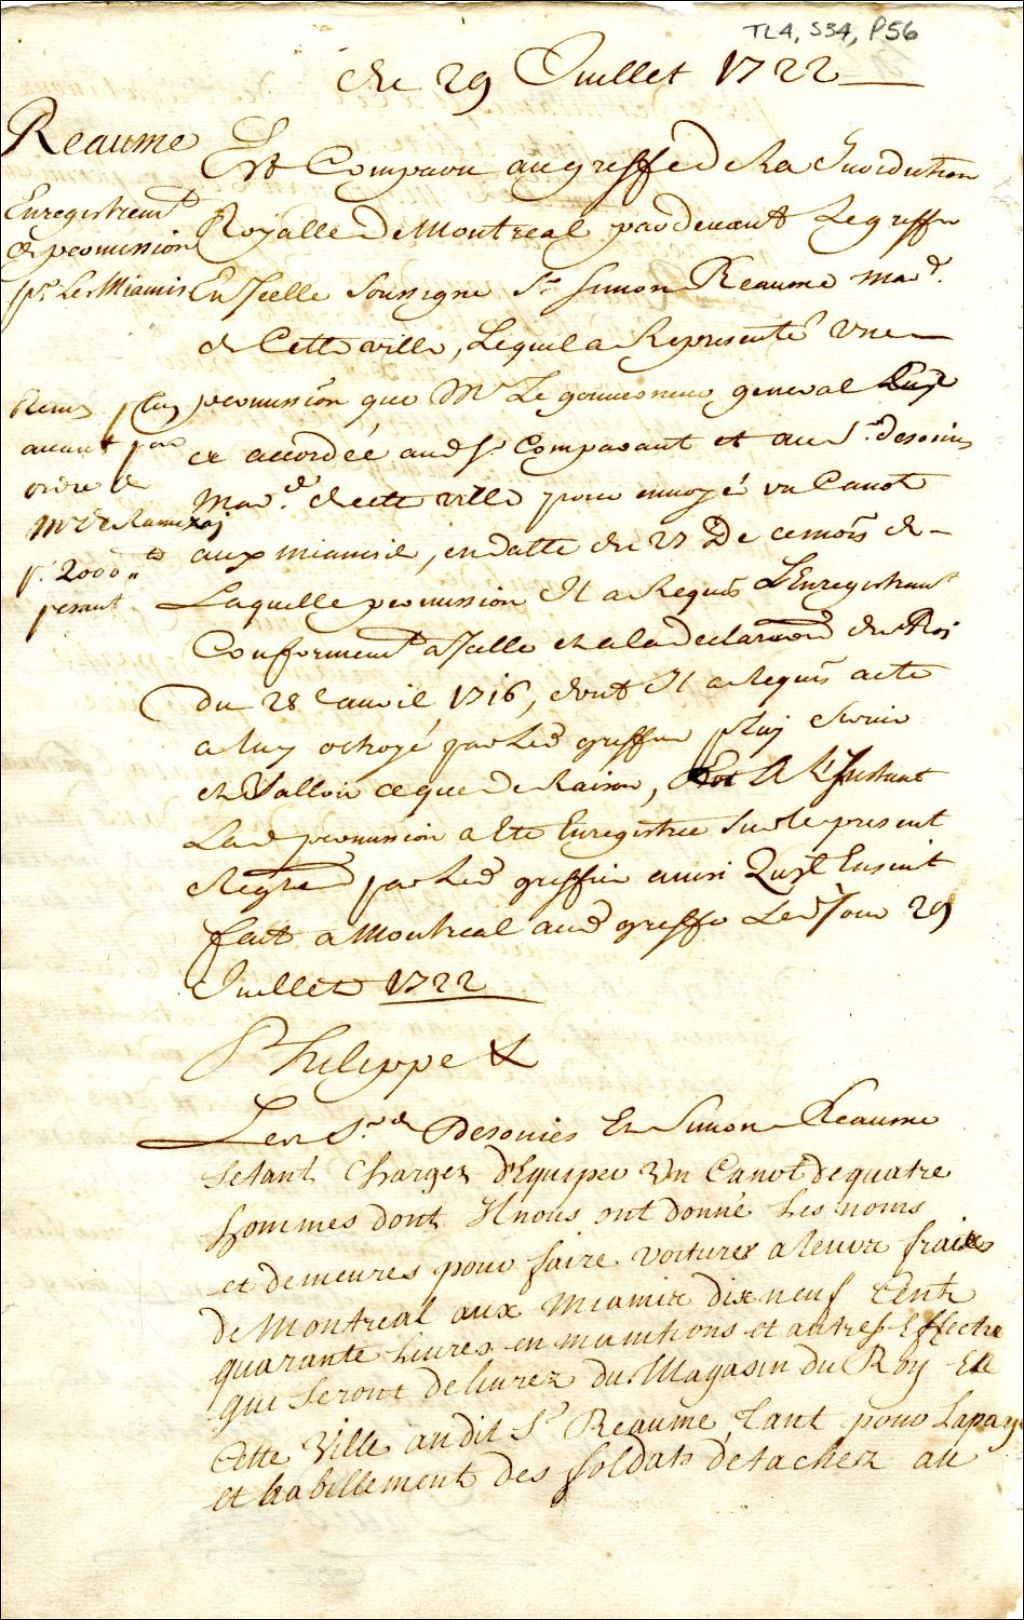 TL4, S34, P56
Du 29 Juillet 1722
Reaume
Enregistremt
de permission
pr. Les Miamis
Remis plus
avant par
ordre de
Mr de Ramezay
pr. 2000 lb
pesant
Est Comparu au greffe de la Juridiction
Royalle De Montreal pardevant Le greffier
En Icelle Soussigne Sr Simon Reaume mard.
de Cette ville, Lequel a Representé Une
permission que Mr Le gouverneur general Luy
a accordée aud Sr Comparant et au Sr. desonies
Mard. de cette ville pour envoyé un Canot
aux miamis, en datte du 27 De ce mois de
Laquelle permission Il a Requis L'Enregistremt
Conformemt a Icelle et a la declaraon du Roi
du 28 avril 1716, dont Il a Requis acte
a luy octroyé par Led greffier pr luy servir
et Valloir ce que de Raison, Et A L'Instant
Lad permission a Ete Enregistrée Sur le present
Registre par Led greffier ainsi Quil Ensuit
fait a Montreal aud greffe Led Jour 29
Juillet 1722
Les Srs. Desonies Et Simon Reaume
setant Chargez d'Equiper Un Canot de quatre
hommes dont Il nous ont donné Les noms
et demeures pour faire voiturer a leurs fraix
de Montreal aux Miamis dix neuf Cents
quarante Livres en munitions et autres Effects
qui seront delivrez du Magasin du Roy En
Cette Ville audit Sr Reaume, Tant pour La paye
et habillement des soldats détachez au